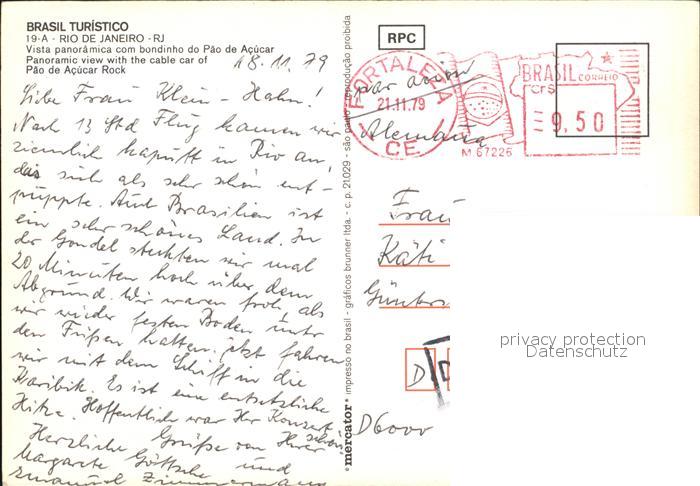 BRASIL TURÍSTICO
19-A - RIO DE JANEIRO - RJ
Vista panorâmica com bondinho do Pão de Açúcar
Panoramic view with the cable car of
Pão de Açúcar Rock
18.11.79
Liebe Frau Klein-Hahn!
Nach 13 Std Flug kamen wir
ziemlich kaputt in Rio an,
das sich als sehr schön ent-
puppte. Auch Brasilien ist
ein sehr schönes Land. In
der Gondel steckten wir mal
20 Minuten hoch über dem
Abgrund. Wir waren froh, als
wir wieder festen Boden unter
den Füßen hatten. Jetzt fahren
wir mit dem Schiff in die
Karibik. Es ist eine entsetzliche
Hitze. Hoffentlich war Ihr Konzert
schön
Herzliche Grüße von Ihrer
Margarete und
Zimmermann
mercator · impresso no brasil - gráficos brunner ltda. - c. p. 21.029 - são paulo - reprodução proibida
RPC
par avion
Alemanha
FORTALEZA
21.11.79
CE.
BRASIL CORREIO
CR$
9.50
M 67226
Frau
Käti
Günters
D
D6000
privacy protection
Datenschutz